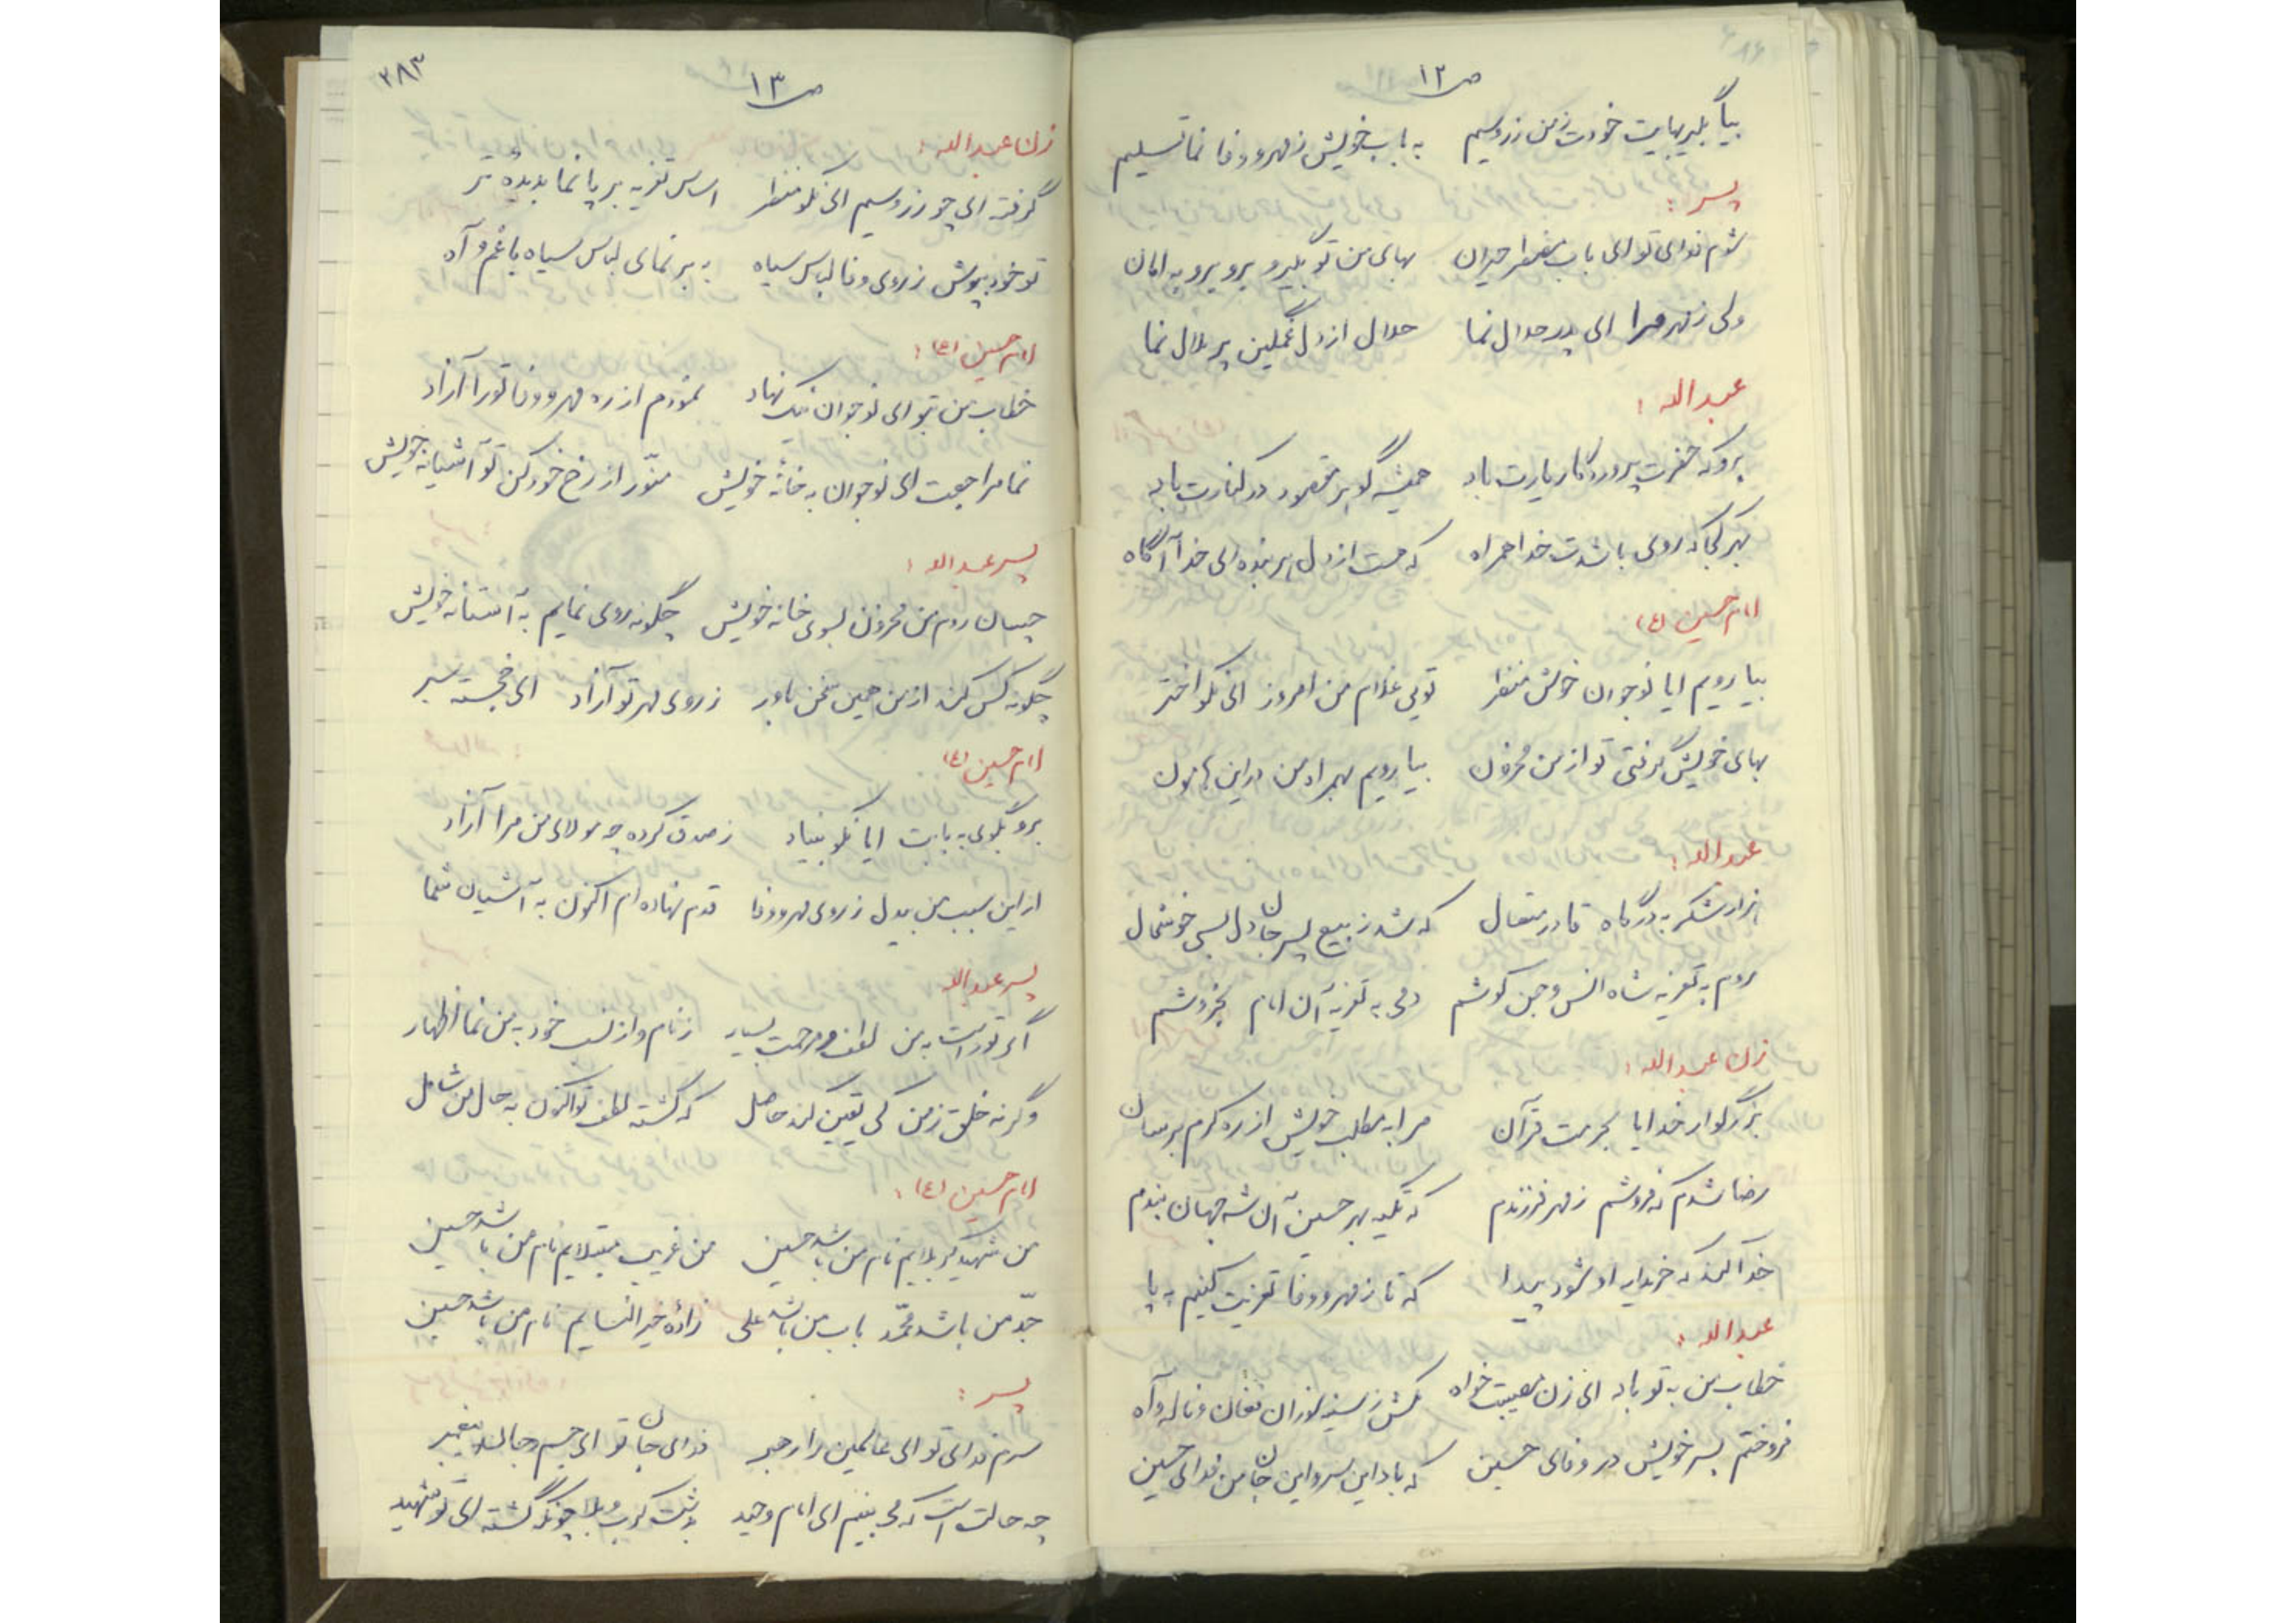 ص ۱۲
بیا بگیر بهایت خودت ز من زر و سیم به باب خویش ز مهر و وفا نما تسلیم
پسر :
شوم فدای تو ای باب مضطر حیران بهای من تو بگیر و برو برو به امان
ولی ز مهر مرا ای پدر حلال نما حلال از دل غمگین پر ملال نما
عبدالله :
برو که حضرت پروردگار یارت باد همیشه گوهر مقصود در کنارت باد
بهر کجا که روی باشدت خدا همراه که هست از دل هر بنده ای خدا آگاه
امام حسین (ع)
بیا رویم ایا نوجوان خوش منظر تویی غلام من امروز ای نکو اختر
بهای خویش گرفتی تو از من محزون بیا رویم بهمراه من در این هامون
عبدالله :
هزار شکر به درگاه قادر متعال که شد ز بیع پسر جان دل بسی خوشحال
روم به تعزیه شاه انس و جن کوشم دمی به تعزیۀ آن امام بخروشم
زن عبدالله :
بزرگوار خدایا بحرمت قرآن مرا به مطلب خویش از ره کرم برسان
رضا شدم که فروشم ز مهر فرزندم که تکیه بهر حسین آن شه جهان بندم
خدا کند که خریدار او شود پیدا که تا ز مهر و وفا تعزیت کنیم بپا
عبدالله :
خطاب من به تو باد ای زن مصیبت خواه بکش ز سینه سوزان فغان و ناله و آه
فروختم پسر خویش در وفای حسین که باد این سر و این جان من فدای حسین
۲۸۳
ص ۱۳
زن عبدالله :
گرفته ای چو زر و سیم ای نکو منظر اساس تعزیه بر پا نما بدیده تر
تو خود بپوش ز روی وفا لباس سیاه به بر نمای لباس سیاه با غم و آه
امام حسین (ع) :
خطاب من بتو ای نوجوان نیک نهاد نمودم از ره مهر و وفا تو را آزاد
نما مراجعت ای نوجوان به خانۀ خویش منوّر از رخ خود کن تو آشیانه خویش
پسر عبدالله :
چسان روم من محزون بسوی خانه خویش چگونه روی نمایم به آستانه خویش
چگونه کس کند از من همین سخن باور ز روی مهر تو آزاد ای خجسته سیر
امام حسین (ع)
برو بگوی به بابت ایا نکو بنیاد ز صدق کرده چو مولای من مرا آزاد
از این سبب من بیدل ز روی مهر و وفا قدم نهاده ام اکنون به آشیان شما
پسر عبدالله
اگر تو راست به من لطف و مرحمت بسیار ز نام و از نسب خود به من نما اظهار
وگرنه خلق ز من کی یقین کند حاصل که گشته لطف تو اکنون به حال من شامل
امام حسین (ع) :
من شهید کربلایم نام من باشد حسین من غریب مبتلایم نام من باشد حسین
جدّ من باشد محمّد باب من باشد علی زادۀ خیرالنسایم نام من باشد حسین
پسر :
سرم فدای تو ای عالمین را رهبر فدای جان تو ای جسم و جان پیغمبر
چه حالت است که می بینم ای امام وحید بدشت کرب و بلا چونکه گشته ای تو شهید